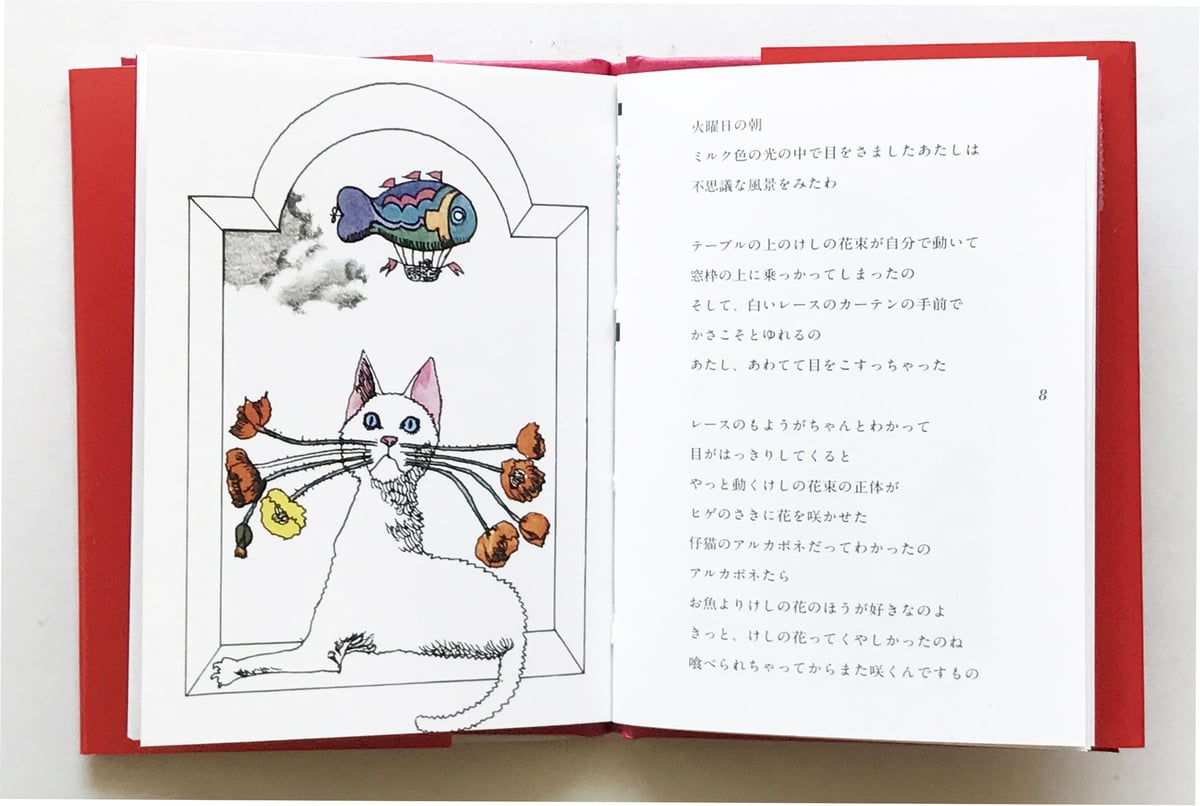 火曜日の朝
ミルク色の光の中で目をさましたあたしは
不思議な風景をみたわ
テーブルの上のけしの花束が自分で動いて
窓枠の上に乗っかってしまったの
そして、白いレースのカーテンの手前で
かさこそとゆれるの
あたし、あわてて目をこすっちゃった
8
レースのもようがちゃんとわかって
目がはっきりしてくると
やっと動くけしの花束の正体が
ヒゲのさきに花を咲かせた
仔猫のアルカポネだってわかったの
アルカポネたら
お魚よりけしの花のほうが好きなのよ
きっと、けしの花ってくやしかったのね
喰べられちゃってからまた咲くんですもの